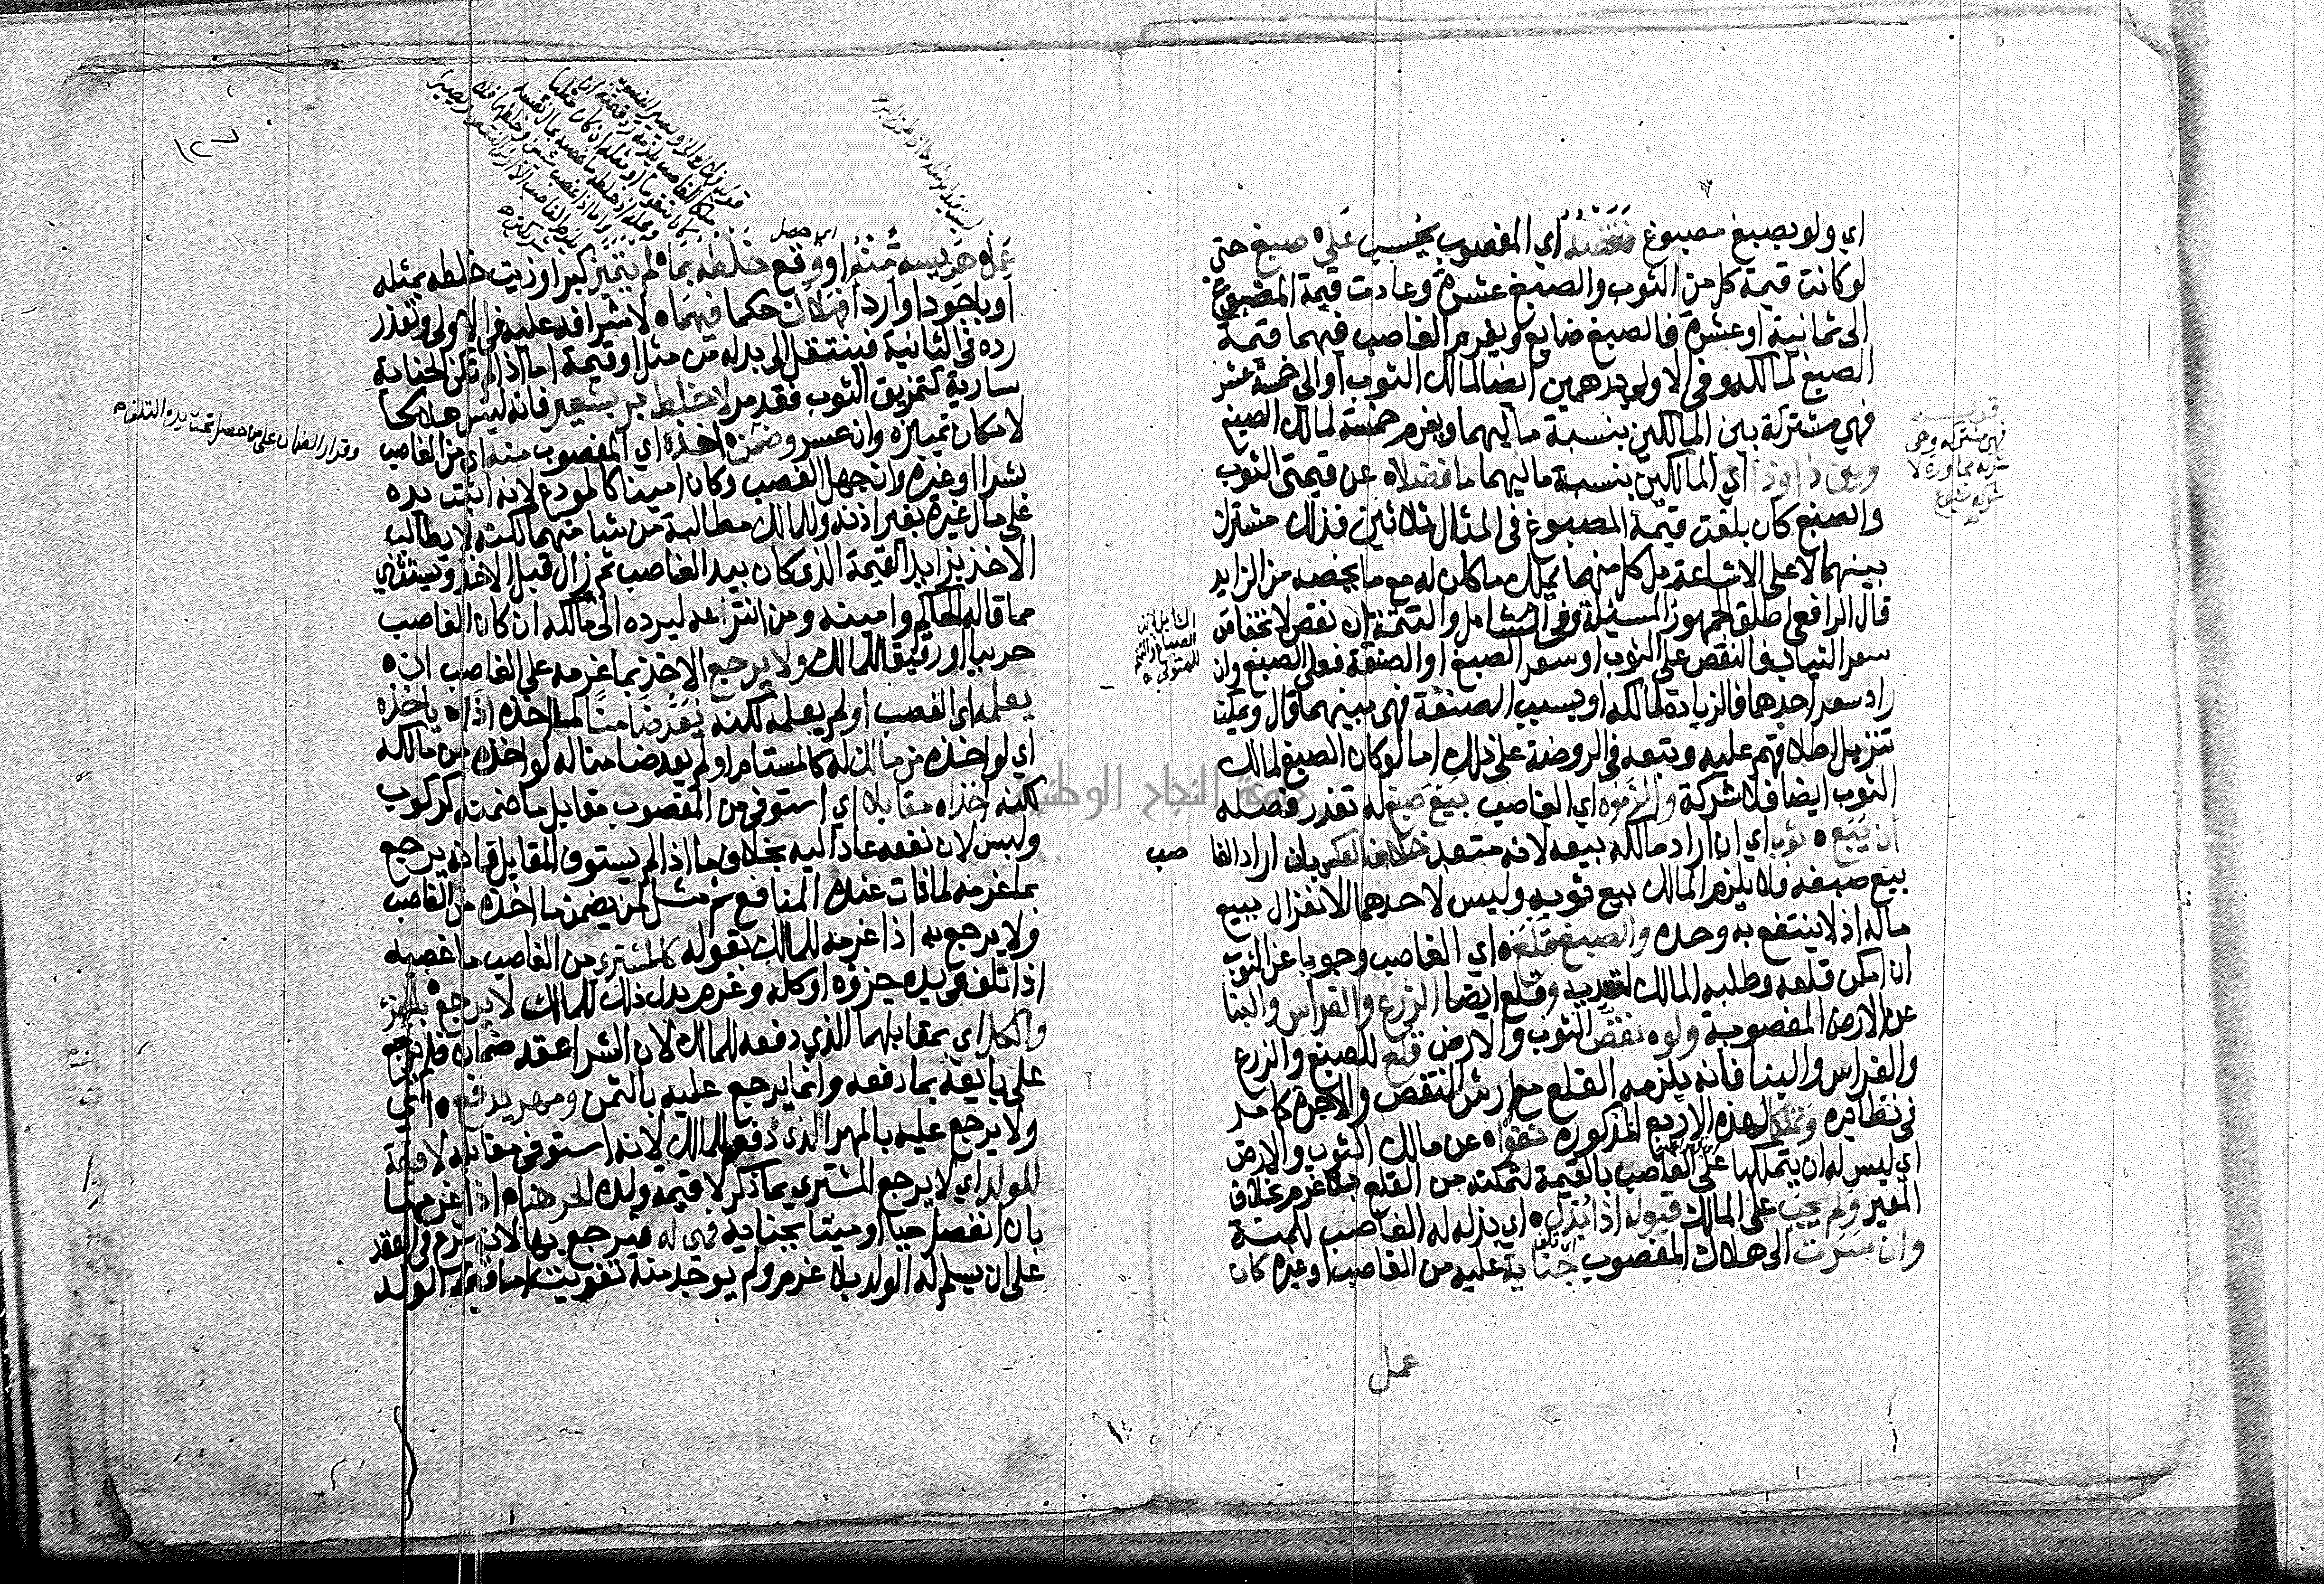 اي ولو بصبغ مصبوغ فنقصه اي المغصوب يحسب على صبغ حتى
لو كانت قيمة كل من الثوب والصبغ عشرة وعادت قيمة المصبوغ
الى ثمانية او عشرة فالصبغ ضايع ويغرم الغاصب فيهما قيمة
الصبغ لمالكه وفي الاولى درهمين ايضا لمالك الثوب او الى خمسة عشر
فهي مشتركة بين المالكين بنسبة ماليهما ويغرم خمسة لمالك الصبغ
اي المالكين بنسبة ماليهما ما فضلا عن قيمتى الثوب
والصبغ كان بلغت قيمة المصبوغ فى المثال ثلاثين فذلك مشترك
بينهما لا على الاشاعة بل كل منهما يملك ما كان له مع ما يخصه من الزايد
قال الرافعى اطلق الجمهور المسيلة وفى الشامل والتتمة ان نقص لانخفاض
سعر الثياب فالنقص على الثوب او سعر الصبغ او الصنعة فعلى الصبغ وان
زاد سعر احدهما فالزيادة لمالكه او بسبب الصنعة فهى بينهما قال ويمكن
تنزيل اطلاقهم عليه وتبعه فى الروضة على ذلك اما لو كان الصبغ لمالك
الثوب ايضا فلا شركة والزموه اي الغاصب بيع صبغ له تعذر فصله
ان يبع ثوب اي ان اراد مالكه بيعه لانه متعد خلاف العكس بان اراد الغا صب
بيع صبغه فلا يلزم المالك بيع ثوبه وليس لاحدهما الانفراد ببيع
ماله اذ لا ينتفع به وحده والصبغ قلع اي الغاصب وجوبا عن الثوب
ان امكن قلعه وطلبه المالك لتعديه وقلع ايضا الزرع والغراس والبنا
عن الارض المغصوبة ولو نقص الثوب والارض قلع للصبغ والزرع
والغراس والبنا فانه يلزمه القلع مع ارش النقص والاجرة كما مر
فى نظايره وتملكا لهذه الاربع المذكورة نفوا عن مالك الثوب والارض
اي ليس له ان يتملكها على الغاصب بالقيمة لتمكنه من القلع بلا غرم بخلاف
المعير ولم يجب على المالك قبوله اذا بذل اي بذله له الغاصب للمنة
وان سرت الى هلاك المغصوب جناية عليه من الغاصب او غيره كان
عمل
فهي مشتركة وهى
شركة مجاورة لا
شركة شيوع
١٢٧
عمل هريسة منه او وقع خلطه بما لم يتميز كبر او زيت خلطه بمثله
او باجود او اردا فهلاك حكما فيهما لاشرافه عليه فى الاولى وتعذر
رده فى الثانية فينتقل الى بدله من مثل او قيمة اما اذا لم تكن الجناية
سارية كتمزيق الثوب فقد مر لا خلط بر بشعير فانه ليس هلاكا
لامكان تميزه وان عسر وضمن اخذه اي المغصوب منه اي من الغاصب
بشرا او غيره وان جهل الغصب وكان امينا كالمودع لانه اثبت يده
على مال غيره بغير اذنه وللمالك مطالبة من شا منهما لكنه لا يطالب
الاخذ بزايد القيمة الذى كان بيد الغاصب ثم زال قبل الاخذ ويستثنى
مما قاله الحاكم وامينه ومن انتزعه ليرده الى مالكه ان كان الغاصب
حربيا او رقيقا للمالك ولا يرجع الاخذ بما غرمه على الغاصب ان
يعلمه اي الغصب او لم يعلمه لكنه يعد ضامنا لما اخذه اذ ياخذه
اي لو اخذه من مالك له كالمستام او لم يعد ضامنا له لو اخذه من مالكه
لكنه اخذ مقابلا اي استوفى من المغصوب مقابل ما ضمنه كركوب
ولبس لان نفعه عاد اليه بخلاف ما اذا لم يستوف المقابل فانه يرجع
بما غرمه لما فات عنده المنافع ثم مثل لمن يضمن ما اخذه من الغاصب
ولا يرجع به اذا غرمه للمالك بقوله كالمشترى من الغاصب ما غصبه
اذا تلف فى يده جزؤه او كله وغرم بدل ذلك للمالك لا يرجع بالجزء
والكل اي بمقابلهما الذي دفعه للمالك لان الشرا عقد ضمان فلم يرجع
على بايعه بما دفعه وانما يرجع عليه بالثمن ومهر يدفع اي
ولا يرجع عليه بالمهر الذى دفع للمالك لانه استوفى مقابله لا قيمة
للولد اي لا يرجع المشترى بما ذكر لا قيمة ولده الحر هناه اذا غرمها
بان انفصل حيا او ميتا بجناية فهي له فيرجع بها لانه شرع فى العقد
على ان يسلم له الولد بلا غرم ولم يوجد منه تفويت اما قيمة الولد
وقرار الضمان على من حصل تحت يده التلف
جامعة النجاح الوطنية